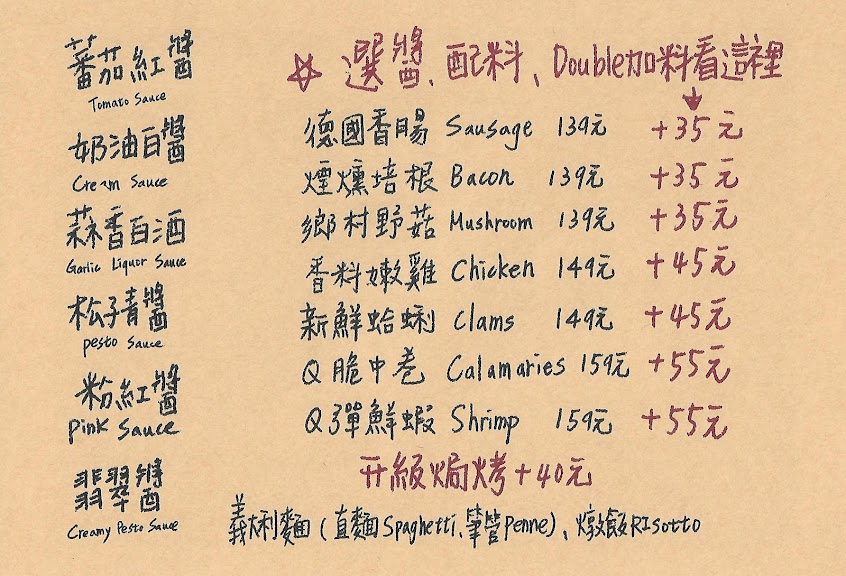 蕃茄紅醬
Tomato Sauce
奶油白醬
Cream Sauce
蒜香白酒
Garlic Liquor Sauce
松子青醬
pesto Sauce
粉紅醬
pink Sauce
翡翠醬
Creamy Pesto Sauce
☆ 選醬、配料、Double加料看這裡
↓
德國香腸 Sausage 139元 +35元
煙燻培根 Bacon 139元 +35元
鄉村野菇 Mushroom 139元 +35元
香料嫩雞 Chicken 149元 +45元
新鮮蛤蜊 Clams 149元 +45元
Q脆中卷 Calamaries 159元 +55元
Q彈鮮蝦 Shrimp 159元 +55元
升級焗烤+40元
義大利麵(直麵Spaghetti、筆管Penne)、燉飯RIsotto